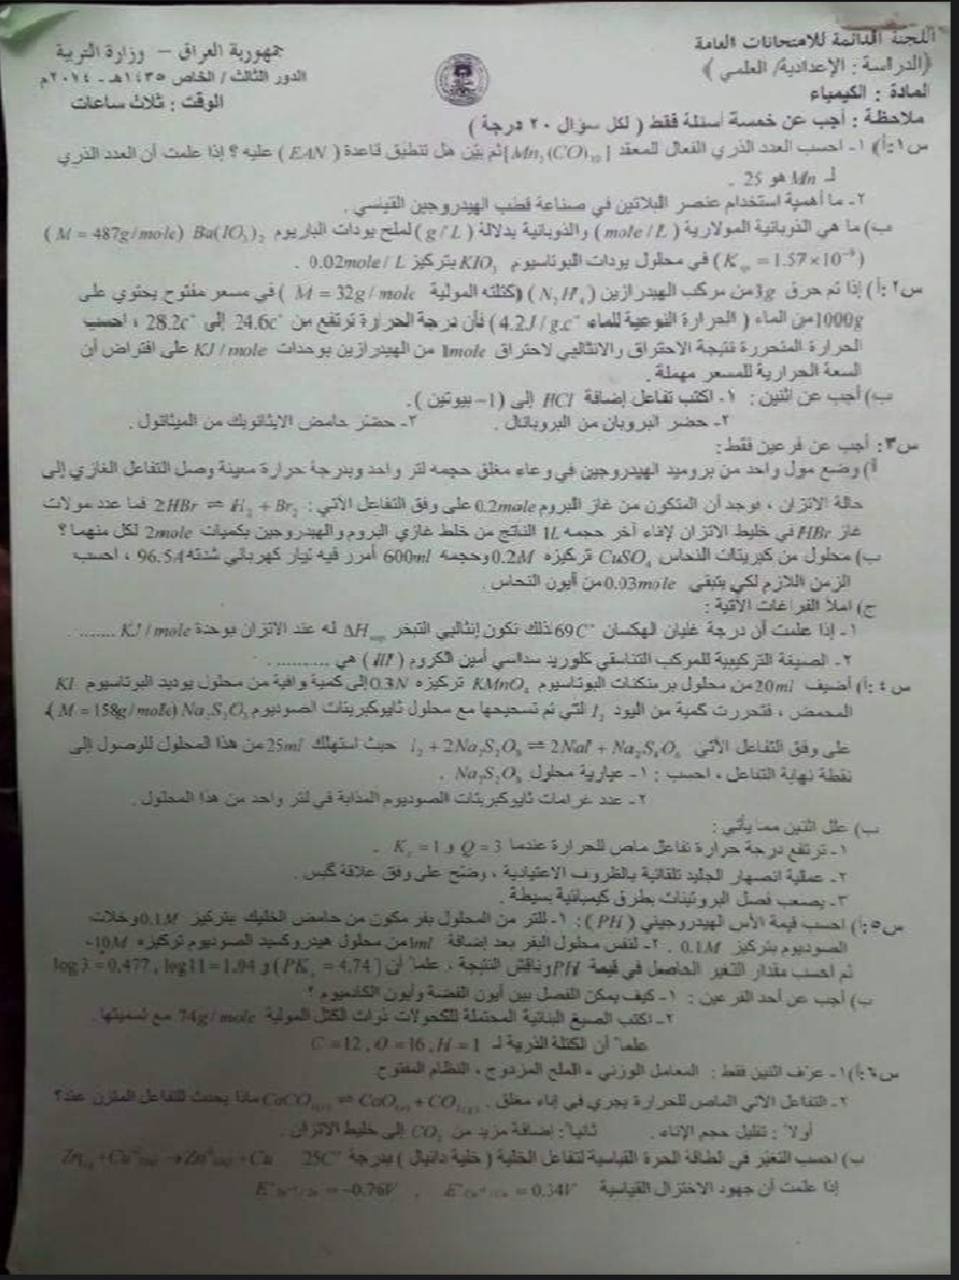 اللجنة الدائمة للامتحانات العامة
جمهورية العراق – وزارة التربية
(الدراسة : الإعدادية/ العلمي)
الدور الثالث / الخاص ١٤٣٥هـ - ٢٠١٤م
المادة : الكيمياء
الوقت : ثلاث ساعات
ملاحظة : أجب عن خمسة أسئلة فقط ( لكل سؤال ٢٠ درجة )
س١:أ) ١- احسب العدد الذري الفعال للمعقد [Mn₂(CO)₁₀] ثم بيّن هل تنطبق قاعدة ( EAN ) عليه ؟ إذا علمت أن العدد الذري
لـ Mn هو 25 .
٢- ما أهمية استخدام عنصر البلاتين في صناعة قطب الهيدروجين القياسي .
ب) ما هي الذوبانية المولارية ( mole / L ) والذوبانية بدلالة ( g / L ) لملح يودات الباريوم Ba(IO₃)₂ ( M = 487g / mole )
( Ksp = 1.57×10⁻⁹ ) في محلول يودات البوتاسيوم KIO₃ بتركيز 0.02mole / L .
س٢:أ) إذا تم حرق 3g من مركب الهيدرازين ( N₂H₄ ) (كتلته المولية M = 32g / mole ) في مسعر مفتوح يحتوي على
1000g من الماء ( الحرارة النوعية للماء 4.2J / g.c° ) فأن درجة الحرارة ترتفع من 24.6c° إلى 28.2c° ، احسب
الحرارة المتحررة نتيجة الاحتراق والانثالبي لاحتراق 1mole من الهيدرازين بوحدات KJ / mole على افتراض أن
السعة الحرارية للمسعر مهملة .
ب) أجب عن اثنين : ١- اكتب تفاعل إضافة HCl إلى (1– بيوتين ) .
٢- حضر البروبان من البروبانال . ٣- حضّر حامض الايثانويك من الميثانول .
س٣: أجب عن فرعين فقط :
أ) وضع مول واحد من بروميد الهيدروجين في وعاء مغلق حجمه لتر واحد وبدرجة حرارة معينة وصل التفاعل الغازي إلى
حالة الاتزان ، فوجد أن المتكون من غاز البروم 0.2mole على وفق التفاعل الآتي : 2HBr ⇌ H₂ + Br₂ فما عدد مولات
غاز HBr في خليط الاتزان لإناء آخر حجمه 1L الناتج من خلط غازي البروم والهيدروجين بكميات 2mole لكل منهما ؟
ب) محلول من كبريتات النحاس CuSO₄ تركيزه 0.2M وحجمه 600ml أمرر فيه تيار كهربائي شدته 96.5A ، احسب
الزمن اللازم لكي يتبقى 0.03mole من أيون النحاس .
ج) املأ الفراغات الآتية :
١- إذا علمت أن درجة غليان الهكسان 69C° لذلك تكون إنثالبي التبخر ΔHvap له عند الاتزان بوحدة KJ / mole ........
٢- الصيغة التركيبية للمركب التناسقي كلوريد سداسي أمين الكروم (III) هي ..........
س٤:أ) أضيف 20ml من محلول برمنكنات البوتاسيوم KMnO₄ تركيزه 0.3N إلى كمية وافية من محلول يوديد البوتاسيوم KI
المحمض ، فتحررت كمية من اليود I₂ التي تم تسحيحها مع محلول ثايوكبريتات الصوديوم Na₂S₂O₃ ( M = 158g / mole )
على وفق التفاعل الآتي I₂ + 2Na₂S₂O₃ ⇌ 2NaI + Na₂S₄O₆ حيث استهلك 25ml من هذا المحلول للوصول إلى
نقطة نهاية التفاعل ، احسب : ١- عيارية محلول Na₂S₂O₃ .
٢- عدد غرامات ثايوكبريتات الصوديوم المذابة في لتر واحد من هذا المحلول .
ب) علل اثنين مما يأتي :
١- ترتفع درجة حرارة تفاعل ماص للحرارة عندما Q = 3 و Kc = 1 .
٢- عملية انصهار الجليد تلقائية بالظروف الاعتيادية ، وضح على وفق علاقة گبس .
٣- يصعب فصل البروتينات بطرق كيميائية بسيطة .
س٥:أ) احسب قيمة الأس الهيدروجيني ( PH ) : ١- للتر من المحلول بفر مكون من حامض الخليك بتركيز 0.1M وخلات
الصوديوم بتركيز 0.1M . ٢- لنفس محلول البفر بعد إضافة 1ml من محلول هيدروكسيد الصوديوم تركيزه 10M
ثم احسب مقدار التغير الحاصل في قيمة PH وناقش النتيجة ، علما أن ( PKa = 4.74 ) و log3 = 0.477 , log11 = 1.04
ب) أجب عن أحد الفرعين : ١- كيف يمكن الفصل بين أيون الفضة وأيون الكادميوم ؟
٢- اكتب الصيغ البنائية المحتملة للكحولات ذوات الكتل المولية 74g / mole مع تسميتها .
علماً أن الكتلة الذرية لـ C = 12 , O = 16 , H = 1
س٦:أ) ١- عرّف اثنين فقط : المعامل الوزني ، الملح المزدوج ، النظام المفتوح
٢- التفاعل الآتي الماص للحرارة يجري في إناء مغلق . CaCO₃(s) ⇌ CaO(s) + CO₂(g) ماذا يحدث للتفاعل المتزن عند ؟
أولاً : تقليل حجم الإناء . ثانياً : إضافة مزيد من CO₂ إلى خليط الاتزان .
ب) احسب التغير في الطاقة الحرة القياسية لتفاعل الخلية ( خلية دانيال ) بدرجة 25C° Zn(s) + Cu²⁺(aq) → Zn²⁺(aq) + Cu
إذا علمت أن جهود الاختزال القياسية E°Cu²⁺/Cu = 0.34V , E°Zn²⁺/Zn = -0.76V